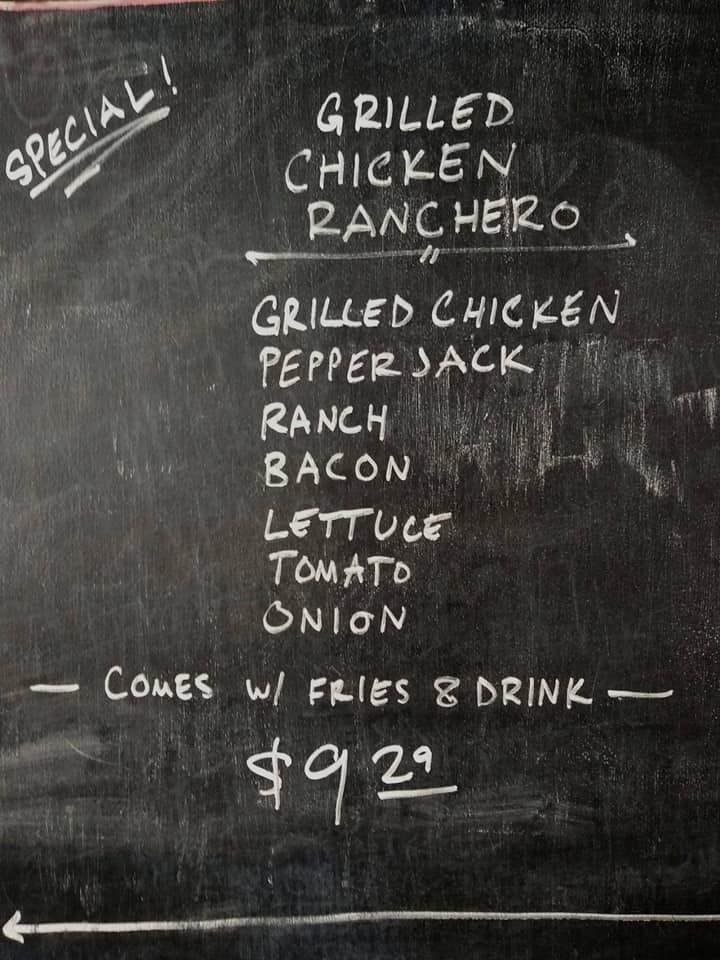 SPECIAL!
GRILLED
CHICKEN
RANCHERO
GRILLED CHICKEN
PEPPER JACK
RANCH
BACON
LETTUCE
TOMATO
ONION
— COMES W/ FRIES & DRINK —
$9 29